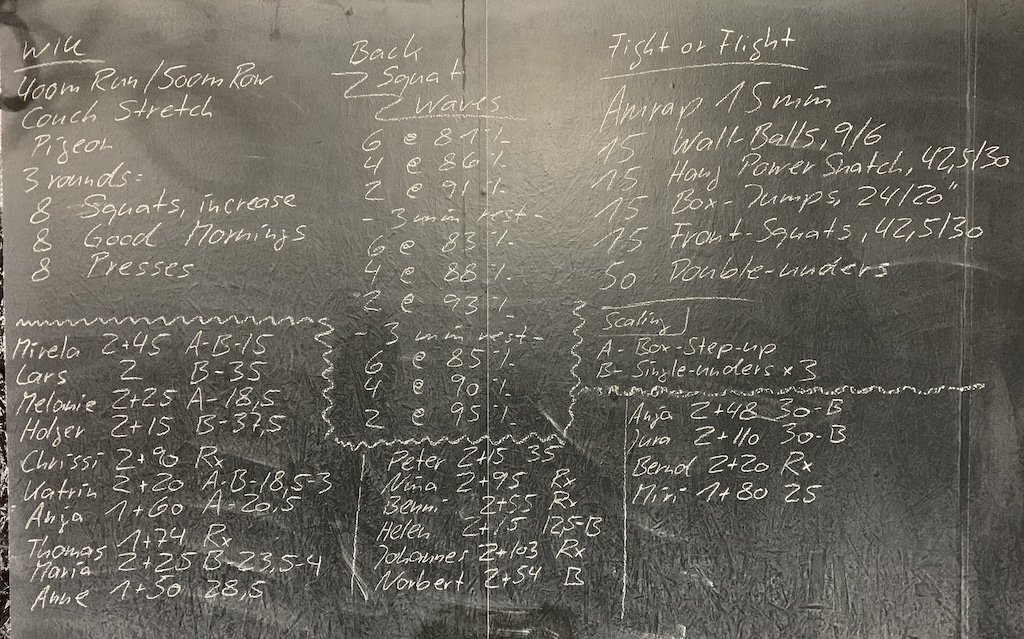 WU
400m Run/500m Row
Couch Stretch
Pigeon
3 rounds:
8 Squats, increase
8 Good Mornings
8 Presses
Back
Squat
2 Waves
6 @ 81%
4 @ 86%
2 @ 91%
- 3 min rest -
6 @ 83%
4 @ 88%
2 @ 93%
- 3 min rest -
6 @ 85%
4 @ 90%
2 @ 95%
Fight or Flight
Amrap 15 min
15 Wall-Balls, 9/6
15 Hang Power Snatch, 42,5/30
15 Box-Jumps, 24/20"
15 Front-Squats, 42,5/30
50 Double-unders
Scaling
A- Box-Step-up
B- Single-unders x 3
Mirela 2+45 A-B-15
Lars 2 B-35
Melanie 2+25 A-18,5
Holger 2+15 B-37,5
Chrissi 2+90 Rx
Katrin 2+20 A-B-18,5-3
Anja 1+60 A-20,5
Thomas 1+74 Rx
Maria 2+25 B-23,5-4
Anne 1+50 28,5
Peter 2+15 35
Nina 2+95 Rx
Benni 2+55 Rx
Helen 2+15 12,5-B
Johannes 2+103 Rx
Norbert 2+54 B
Anja 2+48 30-B
Jura 2+110 30-B
Bernd 2+20 Rx
Miri 1+80 25